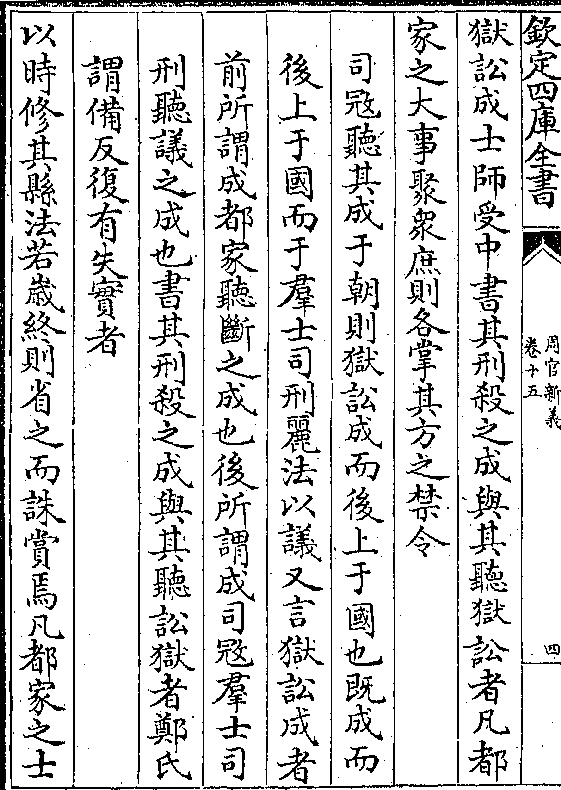 欽定四庫全書
周官新義
卷十五
四
獄訟成士師受中書其刑殺之成與其聽獄訟者凡都
家之大事聚衆庶則各掌其方之禁令
司㓂聽其成于朝則獄訟成而後上于國也既成而
後上于國而于羣士司刑麗法以議又言獄訟成者
前所謂成都家聽斷之成也後所謂成司㓂羣士司
刑聽議之成也書其刑殺之成與其聽訟獄者鄭氏
謂備反復有失實者
以時修其縣法若嵗終則省之而誅賞焉凡都家之士